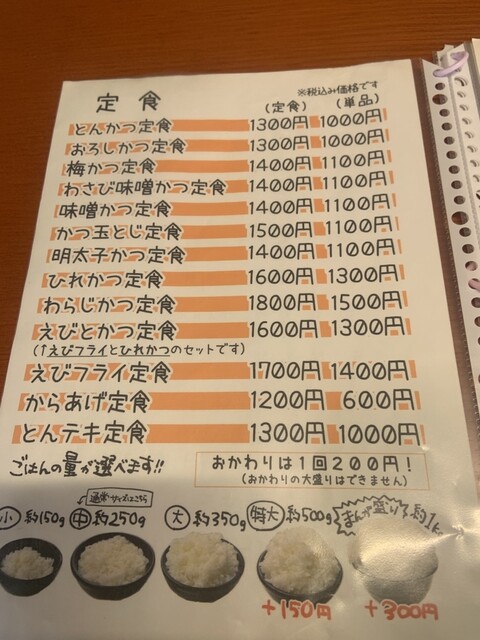 定食
※税込み価格です
(定食) (単品)
とんかつ定食 1300円 1000円
おろしかつ定食 1300円 1000円
梅かつ定食 1400円 1100円
わさび味噌かつ定食 1400円 1100円
味噌かつ定食 1400円 1100円
かつ玉とじ定食 1500円 1100円
明太子かつ定食 1400円 1100円
ひれかつ定食 1600円 1300円
わらじかつ定食 1800円 1500円
えびとかつ定食 1600円 1300円
(↑えびフライとひれかつのセットです)
えびフライ定食 1700円 1400円
からあげ定食 1200円 600円
とんテキ定食 1300円 1000円
ごはんの量が選べます!!
おかわりは1回200円!
(おかわりの大盛りはできません)
通常サイズはこちら
小 約150g 中 約250g 大 約350g 特大 約500g まんが盛り 約1k
+150円 +300円